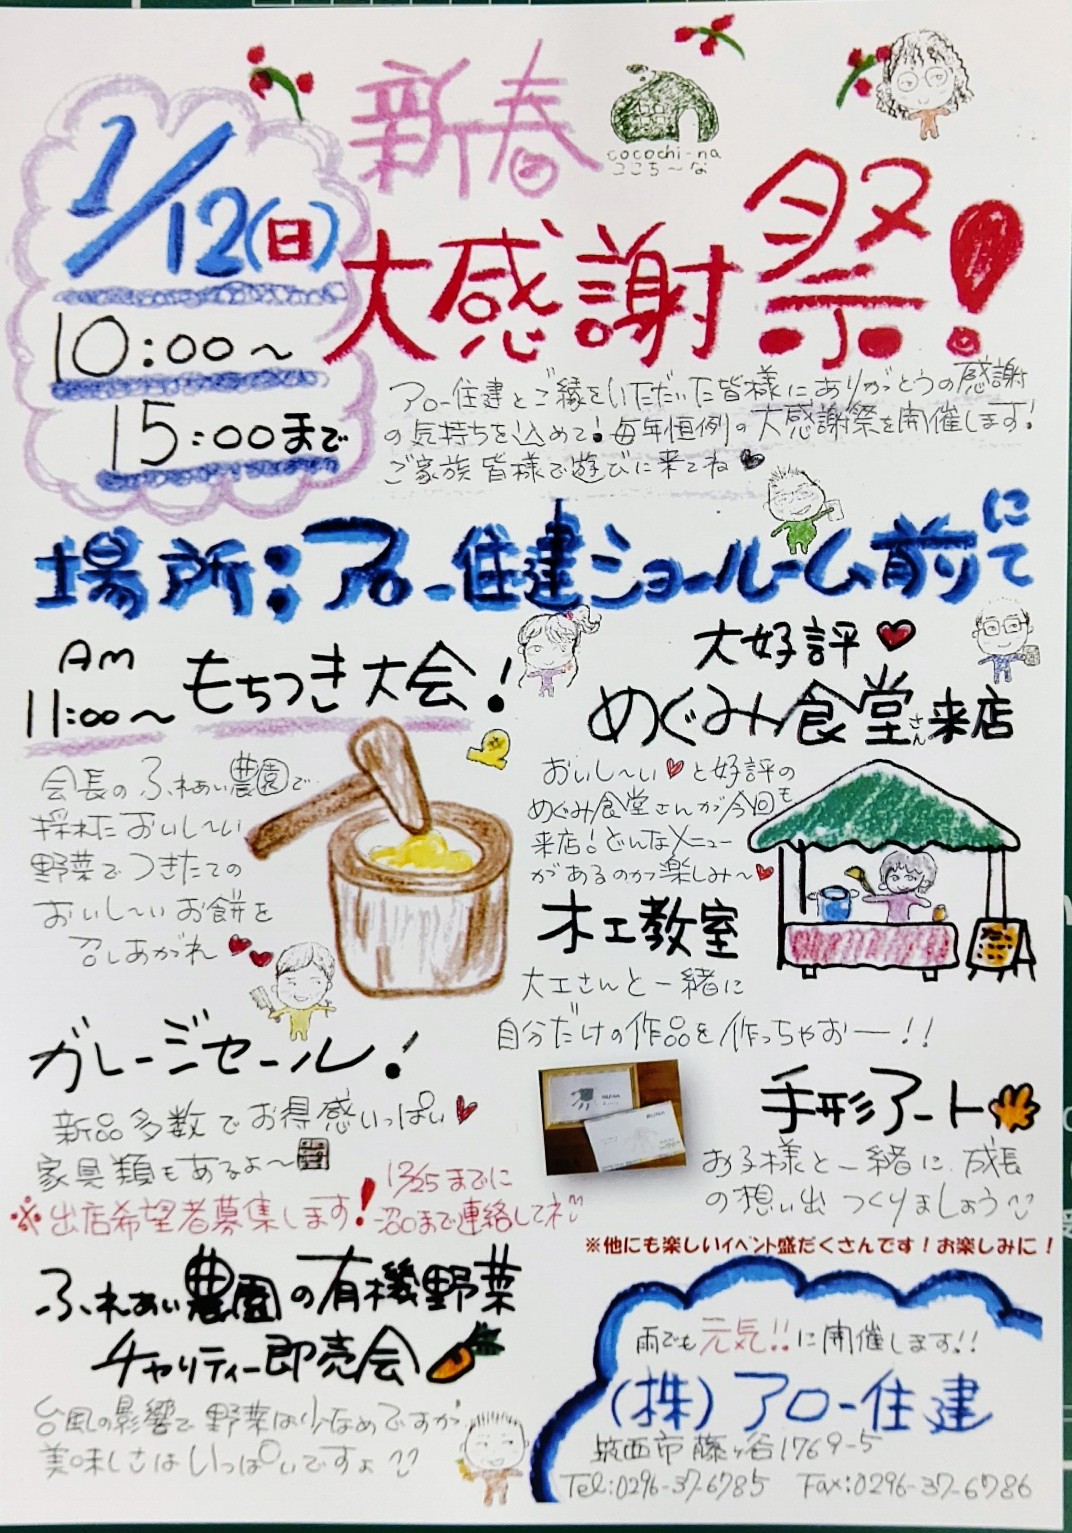 新春
cocochi-na
ここち〜な
大感謝祭!
1/12(日)
10:00〜
15:00まで
アロー住建とご縁をいただいた皆様にありがとうの感謝
の気持ちを込めて!毎年恒例の大感謝祭を開催します!
ご家族皆様で遊びに来てね
場所:アロー住建ショールーム前にて
AM
11:00〜もちつき大会!
会長のふれあい農園で
採れたおいし〜い
野菜でつきたての
おいし〜いお餅を
召しあがれ
大好評
めぐみ食堂さん来店
おいし〜いと好評の
めぐみ食堂さんが今回も
来店!どんなメニュー
があるのか楽しみ〜
木工教室
大工さんと一緒に
自分だけの作品を作っちゃおー!!
ガレージセール!
新品多数でお得感いっぱい
家具類もあるよ〜
※出店希望者募集します!12/25までに
沼口まで連絡してネ
手形アート
お子様と一緒に成長
の想い出つくりましょう
※他にも楽しいイベント盛だくさんです!お楽しみに!
ふれあい農園の有機野菜
チャリティー即売会
台風の影響で野菜は少なめですが
美味しさはいっぱいですよ
雨でも元気!!に開催します!!
(株)アロー住建
筑西市藤ヶ谷1769-5
Tel:0296-37-6785 Fax:0296-37-6786